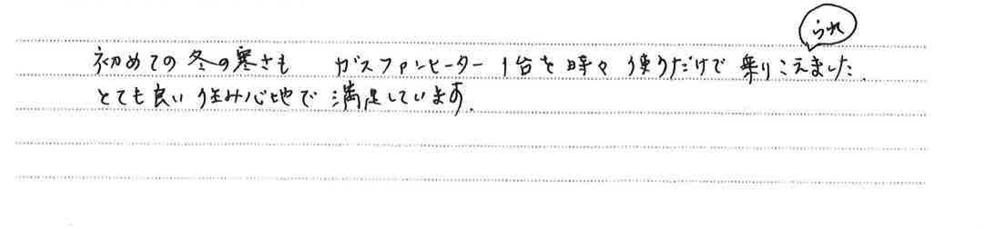 られ
初めての冬の寒さも ガスファンヒーター1台を時々使うだけで乗りこえました.
とても良い住み心地で満足しています.